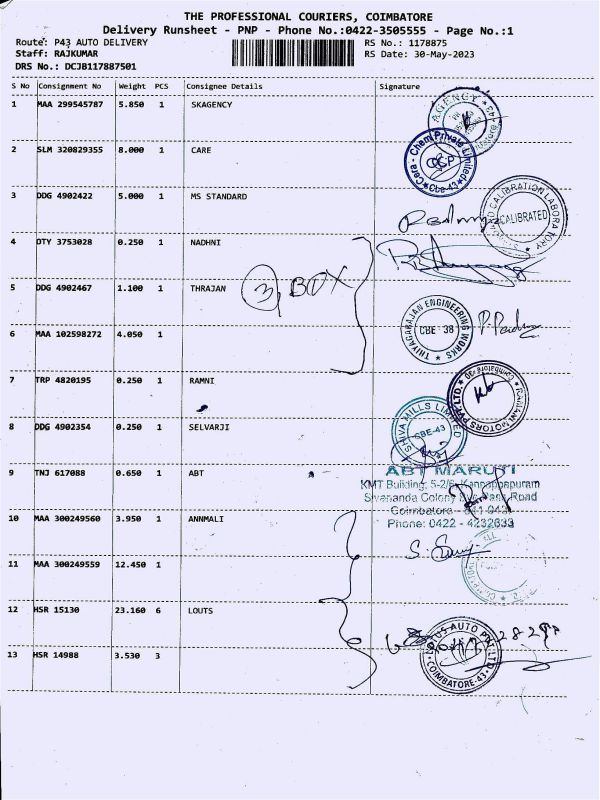 THE PROFESSIONAL COURIERS, COIMBATORE
Delivery Runsheet - PNP - Phone No.:0422-3505555 - Page No.:1
Route: P43 AUTO DELIVERY RS No.: 1178875
Staff: RAJKUMAR RS Date: 30-May-2023
DRS No.: DCJB117887501
S No Consignment No Weight PCS Consignee Details Signature
1 MAA 299545787 5.850 1 SKAGENCY
AGENCY
2 SLM 320829355 8.000 1 CARE
Cera - Chem Private Limited
Cbe-43
3 DDG 4902422 5.000 1 MS STANDARD
CALIBRATION LABORATORY
CALIBRATED
4 OTY 3753028 0.250 1 NADHNI
3, BOX
5 DDG 4902467 1.100 1 THRAJAN
THIYAGARAJAN ENGINEERING WORKS
CBE - 38
6 MAA 102598272 4.050 1
7 TRP 4820195 0.250 1 RAMNI
RAMANI MOTORS PVT. LTD.
8 DDG 4902354 0.250 1 SELVARJI
SHIVA MILLS LIMITED
CBE-43
9 TNJ 617088 0.650 1 ABT
ABT MARUTI
KMT Building, 5-2/6, Kannappapuram
Sivananda Colony Road
Coimbatore
Phone: 0422 - 4232633
10 MAA 300249560 3.950 1 ANNMALI
11 MAA 300249559 12.450 1
12 HSR 15130 23.160 6 LOUTS
LOTUS AUTO PVT LTD
COIMBATORE-43
13 HSR 14988 3.530 3